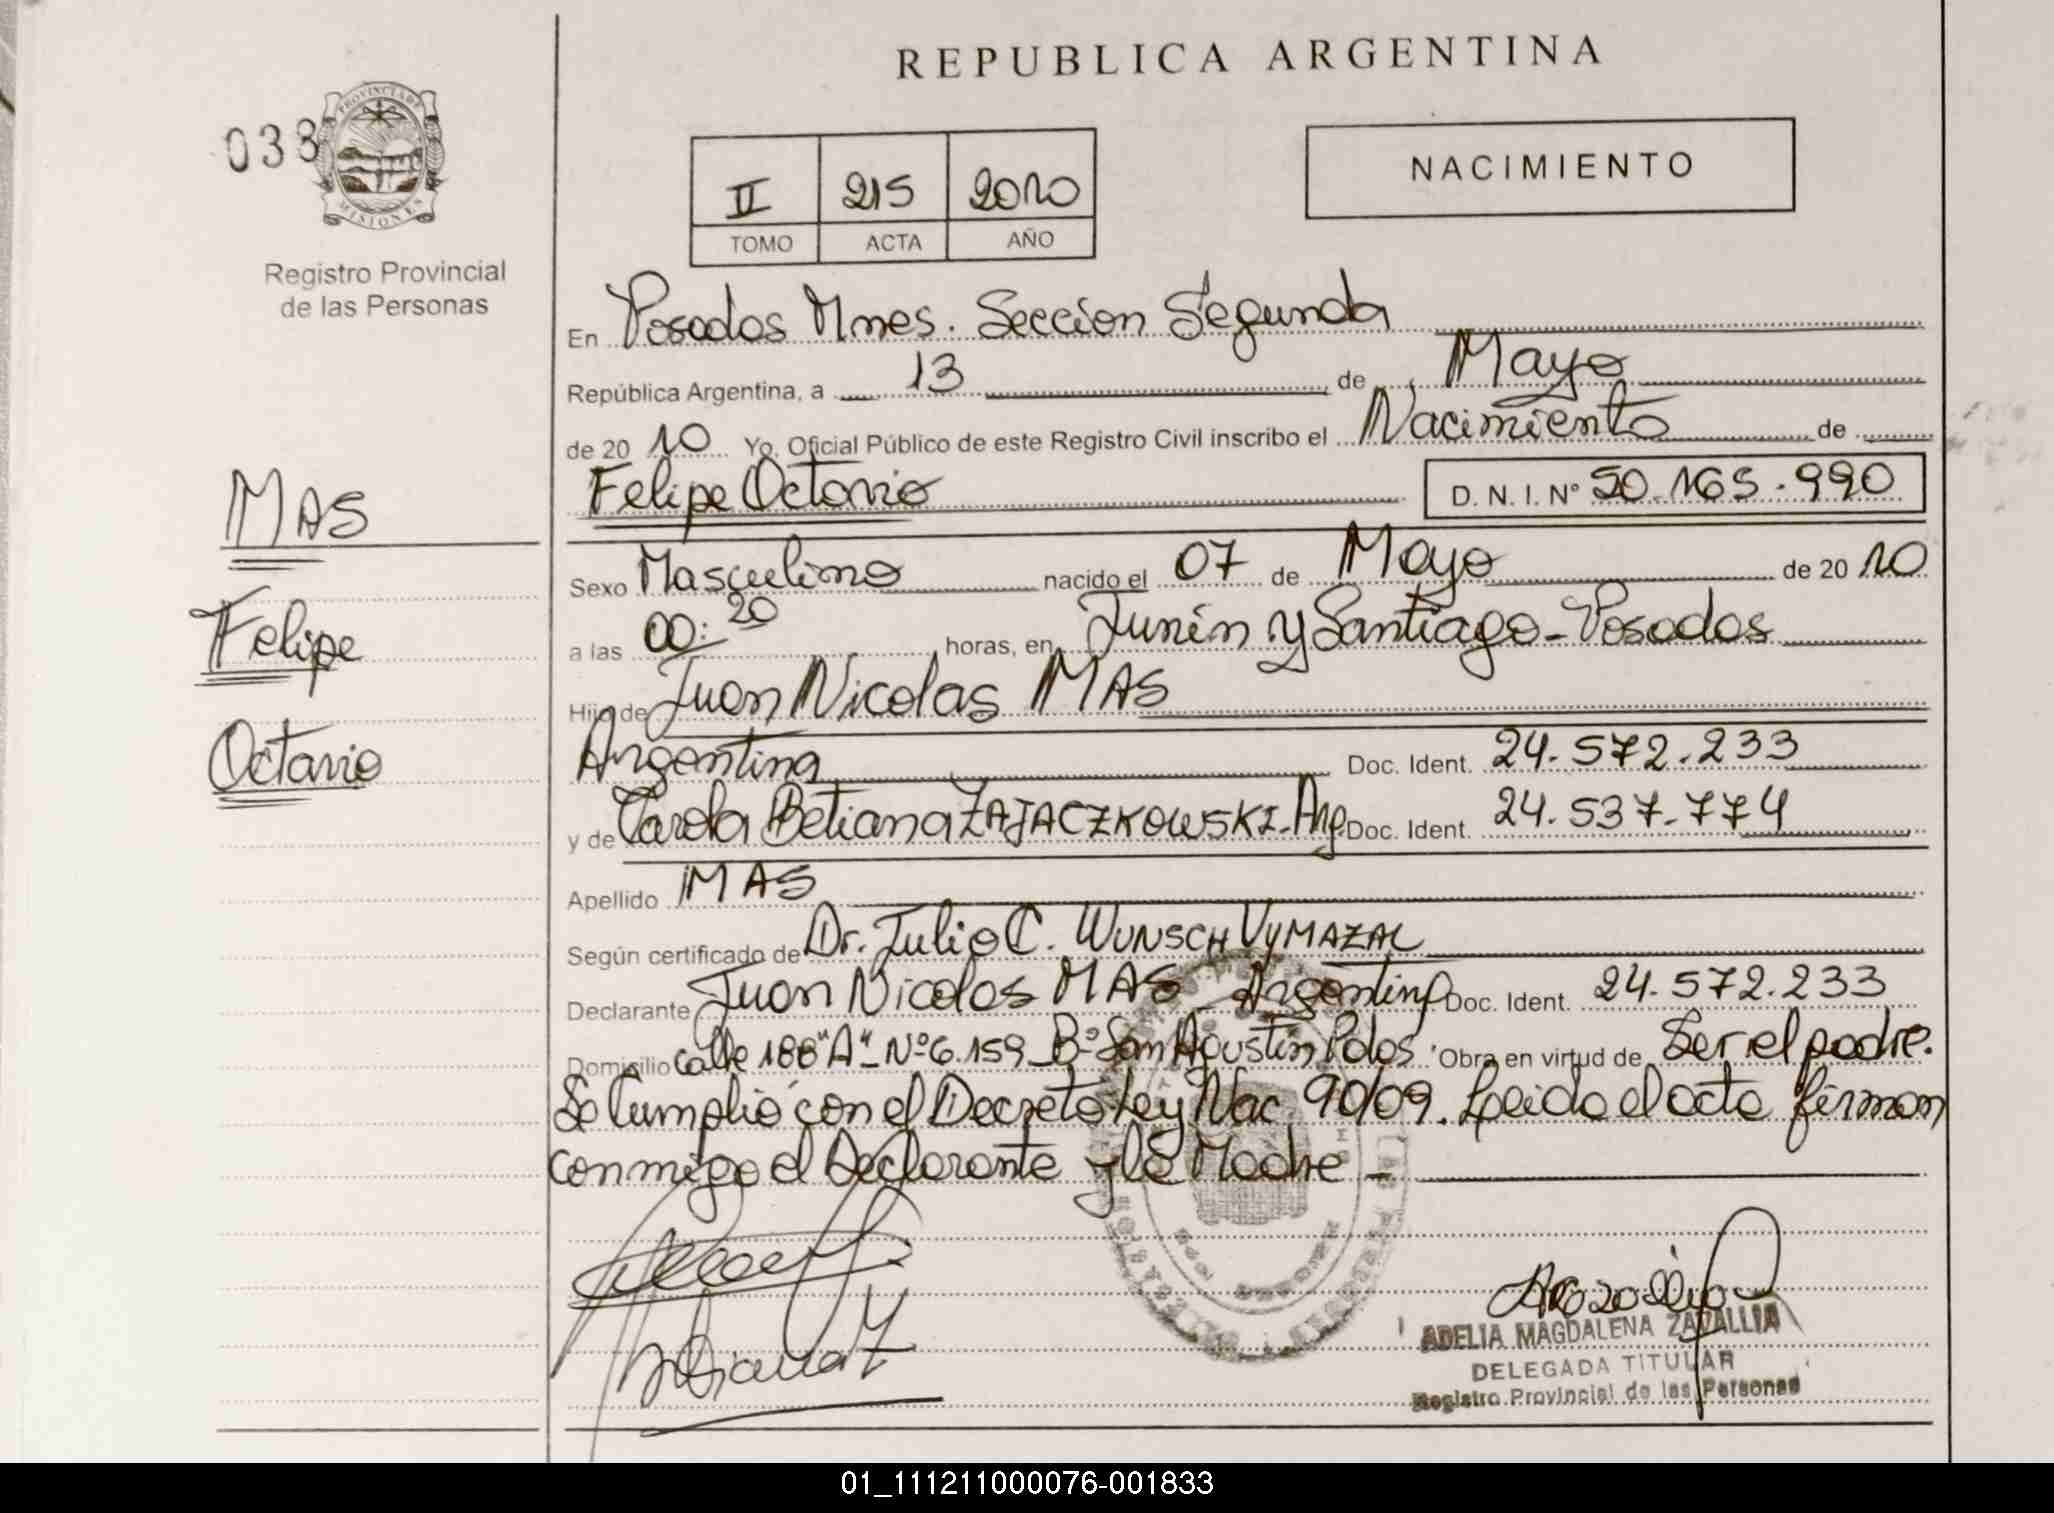 REPUBLICA ARGENTINA
038
PROVINCIA DE
MISIONES
Registro Provincial
de las Personas
II 215 2010
TOMO ACTA AÑO
NACIMIENTO
En Posadas Mnes. Seccion Segunda
República Argentina, a 13 de Mayo
de 20 10 Yo, Oficial Público de este Registro Civil inscribo el Nacimiento de
Felipe Octavio D. N. I. Nº 50.165.990
MAS
Felipe
Octavio
Sexo Masculino nacido el 07 de Mayo de 20 10
a las 00:20 horas, en Junín y Santiago - Posadas
Hijo de Juan Nicolas MAS
Argentina Doc. Ident. 24.572.233
y de Carola Betiana ZAJACZKOWSKI - Arg Doc. Ident. 24.537.774
Apellido MAS
Según certificado de Dr. Julio C. WUNSCH VYMAZAL
Declarante Juan Nicolas MAS Argentina Doc. Ident. 24.572.233
Domicilio calle 188 "A" - Nº 6.159 - Bº San Agustín Pdas. Obra en virtud de Ser el padre.
Se Cumplió con el Decreto Ley Nac. 90/09. Leida el acta firman
conmigo el Declarante y la Madre -
ADELIA MAGDALENA ZAVALLIA
DELEGADA TITULAR
Registro Provincial de las Personas
01_111211000076-001833